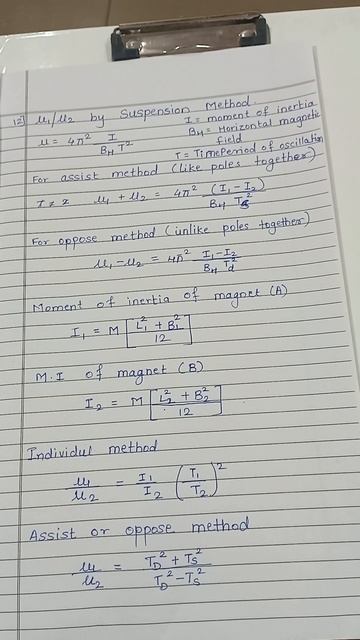 12) μ₁/μ₂ by Suspension Method.
I = moment of inertia
μ = 4π² I / B_H T²
B_H = Horizontal magnetic field
T = Time Period of oscillation
For assist method (like poles together)
μ₁ + μ₂ = 4π² (I₁ - I₂) / B_H T_s²
For oppose method (unlike poles together)
μ₁ - μ₂ = 4π² I₁ - I₂ / B_H T_d²
Moment of inertia of magnet (A)
I₁ = M [L₁² + B₁² / 12]
M.I of magnet (B)
I₂ = M [L₂² + B₂² / 12]
Individul method
μ₁ / μ₂ = I₁ / I₂ (T₁ / T₂)²
Assist or oppose method
μ₁ / μ₂ = T_D² + T_S² / T_D² - T_S²